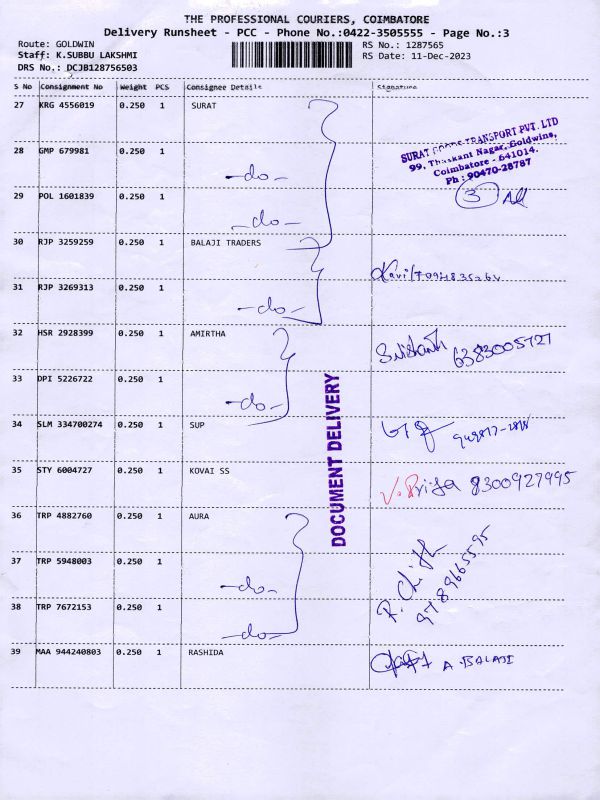 THE PROFESSIONAL COURIERS, COIMBATORE
Delivery Runsheet - PCC - Phone No.:0422-3505555 - Page No.:3
Route: GOLDWIN RS No.: 1287565
Staff: K.SUBBU LAKSHMI RS Date: 11-Dec-2023
DRS No.: DCJB128756503
S No Consignment No Weight PCS Consignee Details Signature
27 KRG 4556019 0.250 1 SURAT
SURAT GOODS TRANSPORT PVT. LTD
99, Thaskant Nagar, Goldwins,
Coimbatore - 641014.
Ph : 90470-28787
28 GMP 679981 0.250 1
-do-
29 POL 1601839 0.250 1 3
-do-
30 RJP 3259259 0.250 1 BALAJI TRADERS
31 RJP 3269313 0.250 1
-do-
32 HSR 2928399 0.250 1 AMIRTHA
6383005727
33 DPI 5226722 0.250 1
-do-
34 SLM 334700274 0.250 1 SUP
35 STY 6004727 0.250 1 KOVAI SS
V. Priya 8300927995
36 TRP 4882760 0.250 1 AURA
37 TRP 5948003 0.250 1
-do-
9789665595
38 TRP 7672153 0.250 1
-do-
39 MAA 944240803 0.250 1 RASHIDA
A. BALAJI
DOCUMENT DELIVERY